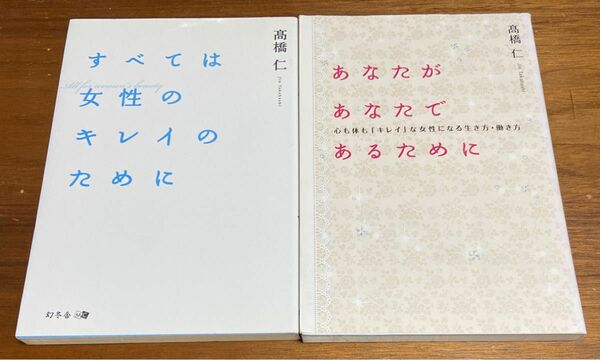 髙橋 仁
Jin Takahashi
すべては
All for women's beauty
女性の
キレイの
ために
幻冬舎MC
髙橋 仁
Jin Takahashi
あなたが
あなたで
心も体も「キレイ」な女性になる生き方・働き方
あるために